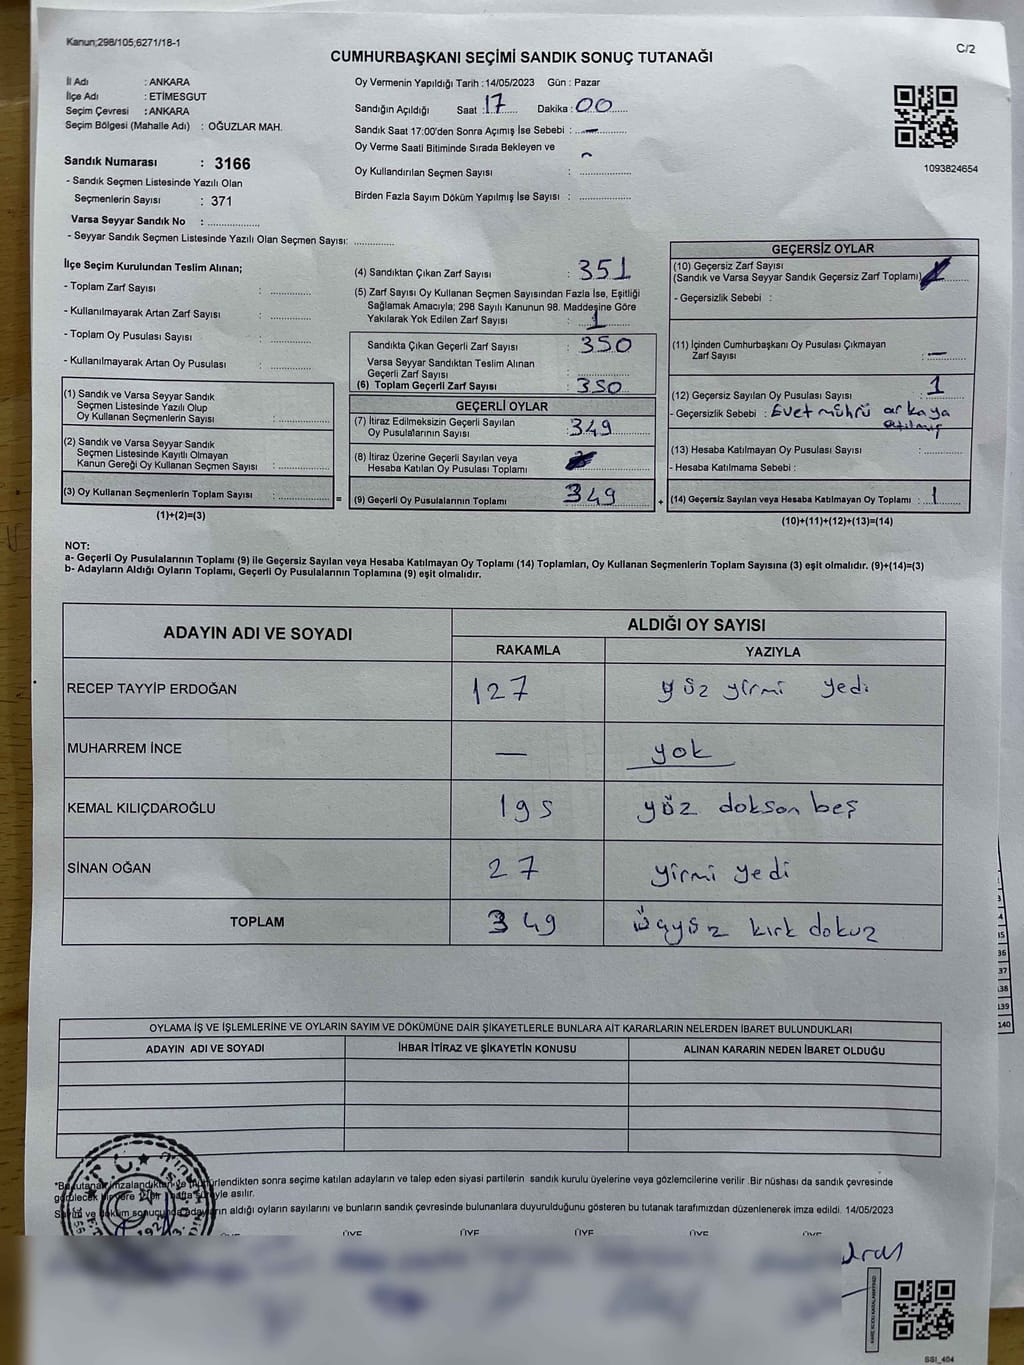 Kanun;298/105;6271/18-1
C/2
CUMHURBAŞKANI SEÇİMİ SANDIK SONUÇ TUTANAĞI
İl Adı : ANKARA
İlçe Adı : ETİMESGUT
Seçim Çevresi : ANKARA
Seçim Bölgesi (Mahalle Adı) : OĞUZLAR MAH.
Sandık Numarası : 3166
- Sandık Seçmen Listesinde Yazılı Olan
Seçmenlerin Sayısı : 371
Varsa Seyyar Sandık No : ................
- Seyyar Sandık Seçmen Listesinde Yazılı Olan Seçmen Sayısı: ............
Oy Vermenin Yapıldığı Tarih : 14/05/2023 Gün : Pazar
Sandığın Açıldığı Saat : 17 Dakika : 00
Sandık Saat 17:00'den Sonra Açımış İse Sebebi : —
Oy Verme Saati Bitiminde Sırada Bekleyen ve
Oy Kullandırılan Seçmen Sayısı : ................
Birden Fazla Sayım Döküm Yapılmış İse Sayısı : ................
1093824654
İlçe Seçim Kurulundan Teslim Alınan;
- Toplam Zarf Sayısı : ............
- Kullanılmayarak Artan Zarf Sayısı : ............
- Toplam Oy Pusulası Sayısı : ............
- Kullanılmayarak Artan Oy Pusulası : ............
(1) Sandık ve Varsa Seyyar Sandık
Seçmen Listesinde Yazılı Olup
Oy Kullanan Seçmenlerin Sayısı : ................
(2) Sandık ve Varsa Seyyar Sandık
Seçmen Listesinde Kayıtlı Olmayan
Kanun Gereği Oy Kullanan Seçmen Sayısı : ................
(3) Oy Kullanan Seçmenlerin Toplam Sayısı : ................ =
(1)+(2)=(3)
(4) Sandıktan Çıkan Zarf Sayısı : 351
(5) Zarf Sayısı Oy Kullanan Seçmen Sayısından Fazla İse, Eşitliği
Sağlamak Amacıyla; 298 Sayılı Kanunun 98. Maddesine Göre
Yakılarak Yok Edilen Zarf Sayısı : 1
Sandıkta Çıkan Geçerli Zarf Sayısı : 350
Varsa Seyyar Sandıktan Teslim Alınan
Geçerli Zarf Sayısı : ................
(6) Toplam Geçerli Zarf Sayısı : 350
GEÇERLİ OYLAR
(7) İtiraz Edilmeksizin Geçerli Sayılan
Oy Pusulalarının Sayısı : 349
(8) İtiraz Üzerine Geçerli Sayılan veya
Hesaba Katılan Oy Pusulası Toplamı :
(9) Geçerli Oy Pusulalarının Toplamı : 349 +
GEÇERSİZ OYLAR
(10) Geçersiz Zarf Sayısı
(Sandık ve Varsa Seyyar Sandık Geçersiz Zarf Toplamı)
- Geçersizlik Sebebi :
(11) İçinden Cumhurbaşkanı Oy Pusulası Çıkmayan
Zarf Sayısı : —
(12) Geçersiz Sayılan Oy Pusulası Sayısı : 1
- Geçersizlik Sebebi : Evet mührü arkaya
atılmış
(13) Hesaba Katılmayan Oy Pusulası Sayısı : ............
- Hesaba Katılmama Sebebi :
(14) Geçersiz Sayılan veya Hesaba Katılmayan Oy Toplamı : 1
(10)+(11)+(12)+(13)=(14)
NOT:
a- Geçerli Oy Pusulalarının Toplamı (9) ile Geçersiz Sayılan veya Hesaba Katılmayan Oy Toplamı (14) Toplamları, Oy Kullanan Seçmenlerin Toplam Sayısına (3) eşit olmalıdır. (9)+(14)=(3)
b- Adayların Aldığı Oyların Toplamı, Geçerli Oy Pusulalarının Toplamına (9) eşit olmalıdır.
ADAYIN ADI VE SOYADI
ALDIĞI OY SAYISI
RAKAMLA YAZIYLA
RECEP TAYYİP ERDOĞAN 127 yüz yirmi yedi
MUHARREM İNCE — yok
KEMAL KILIÇDAROĞLU 195 yüz doksan beş
SİNAN OĞAN 27 yirmi yedi
TOPLAM 349 üçyüz kırk dokuz
OYLAMA İŞ VE İŞLEMLERİNE VE OYLARIN SAYIM VE DÖKÜMÜNE DAİR ŞİKAYETLERLE BUNLARA AİT KARARLARIN NELERDEN İBARET BULUNDUKLARI
ADAYIN ADI VE SOYADI İHBAR İTİRAZ VE ŞİKAYETİN KONUSU ALINAN KARARIN NEDEN İBARET OLDUĞU
tutanak imzalandıktan ve mühürlendikten sonra seçime katılan adayların ve talep eden siyasi partilerin sandık kurulu üyelerine veya gözlemcilerine verilir .Bir nüshası da sandık çevresinde
görülecek bir yere bir hafta süreyle asılır.
Sayım ve döküm sonuçunda adayların aldığı oyların sayılarını ve bunların sandık çevresinde bulunanlara duyurulduğunu gösteren bu tutanak tarafımızdan düzenlenerek imza edildi. 14/05/2023
ÜYE ÜYE ÜYE ÜYE ÜYE ÜYE
T.C.
SSI_404
3
4
35
36
37
138
139
140